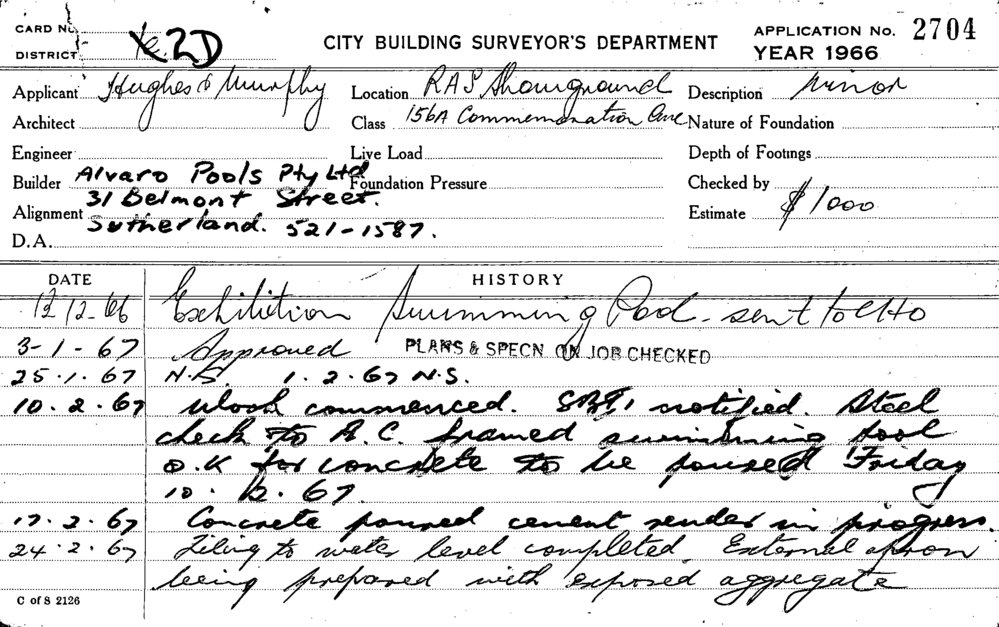 CARD No.
DISTRICT 2D
CITY BUILDING SURVEYOR'S DEPARTMENT
APPLICATION No. 2704
YEAR 1966
Applicant Hughes & Murphy Location RAS Showground Description Minor
Architect Class 156A Commemoration Ave Nature of Foundation
Engineer Live Load Depth of Footings
Builder Alvaro Pools Pty Ltd Foundation Pressure Checked by
31 Belmont Street.
Alignment Sutherland. 521-1587. Estimate $1000
D.A.
DATE HISTORY
12-66 Exhibition Swimming Pool - sent to
3-1-67 Approved PLANS & SPECN ON JOB CHECKED
25.1.67 N.S. 1.2.67 N.S.
10.2.67 Work commenced. notified. Steel
check to R.C. framed swimming pool
O.K for concrete to be poured Friday
10. 2. 67.
17.2.67 Concrete poured cement render in progress.
24.2.67 Tiling to water level completed. External apron
being prepared with exposed aggregate
C of S 2126